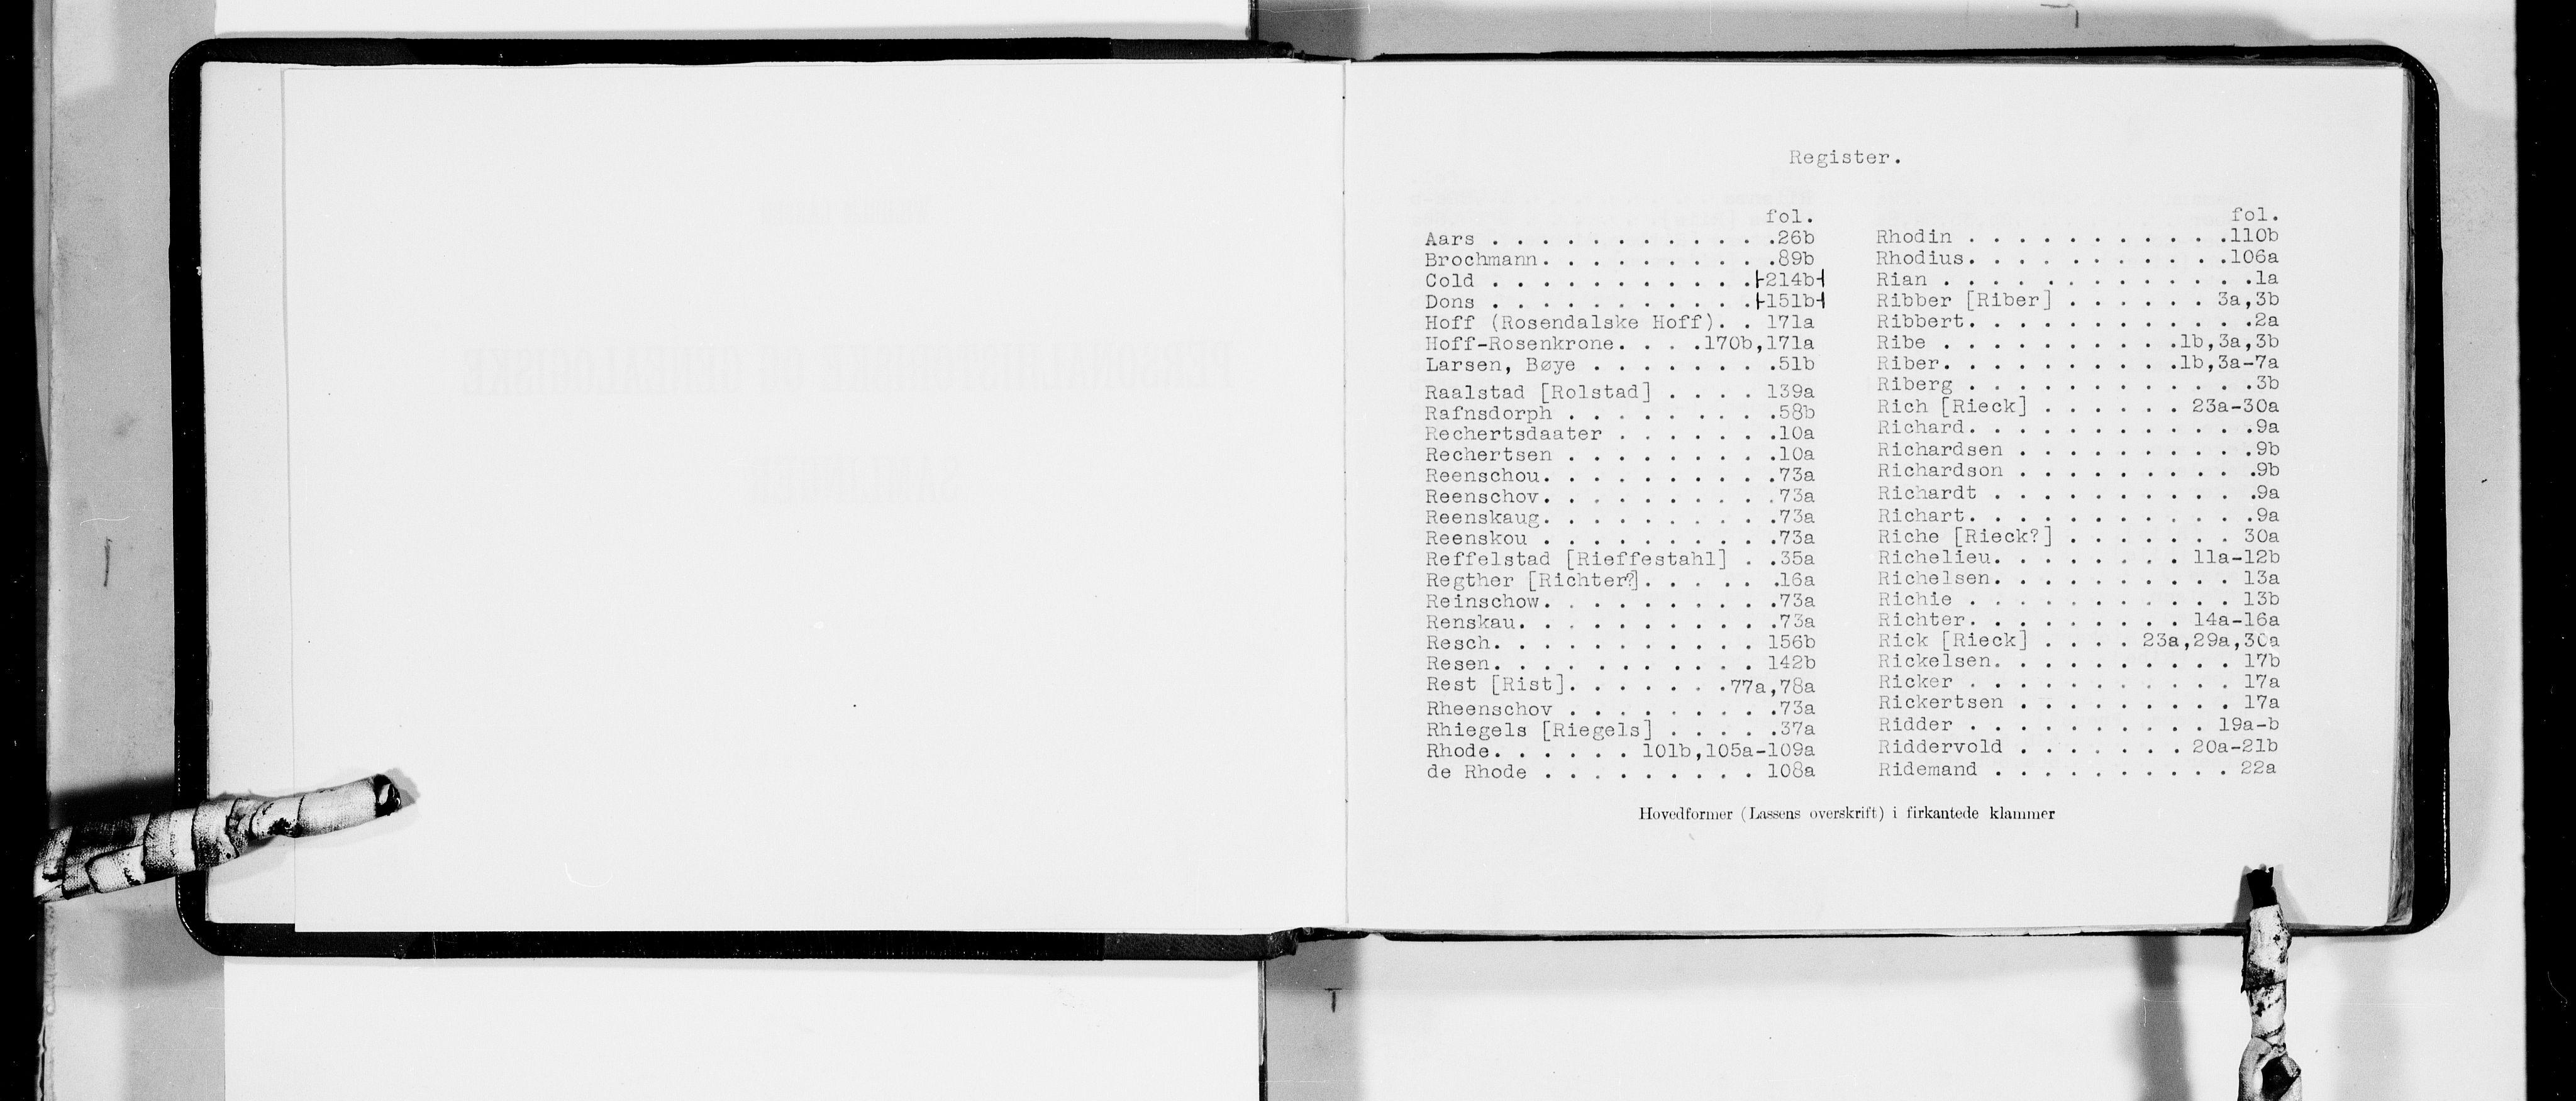 Register.
fol.
Aars . . . . . . . . . . . .26b
Brochmann. . . . . . . . . .89b
Cold . . . . . . . . . . .├214b┤
Dons . . . . . . . . . . .├151b┤
Hoff (Rosendalske Hoff). . 171a
Hoff-Rosenkrone. . . .170b,171a
Larsen, Bøye . . . . . . . .51b
Raalstad [Rolstad] . . . . 139a
Rafnsdorph . . . . . . . . .58b
Rechertsdaater . . . . . . .10a
Rechertsen . . . . . . . . .10a
Reenschou. . . . . . . . . .73a
Reenschov. . . . . . . . . .73a
Reenskaug. . . . . . . . . .73a
Reenskou . . . . . . . . . .73a
Reffelstad [Rieffestahl] . .35a
Regther [Richter?]. . . . . .16a
Reinschow. . . . . . . . . .73a
Renskau. . . . . . . . . . .73a
Resch. . . . . . . . . . . 156b
Resen. . . . . . . . . . . 142b
Rest [Rist]. . . . . . .77a,78a
Rheenschov . . . . . . . . .73a
Rhiegels [Riegels] . . . . .37a
Rhode. . . . . . 101b,105a-109a
de Rhode . . . . . . . . . 108a
fol.
Rhodin . . . . . . . . . . .110b
Rhodius. . . . . . . . . . .106a
Rian . . . . . . . . . . . . .1a
Ribber [Riber] . . . . . . 3a,3b
Ribbert. . . . . . . . . . . .2a
Ribe . . . . . . . . . .1b,3a,3b
Riber. . . . . . . . . .1b,3a-7a
Riberg . . . . . . . . . . . .3b
Rich [Rieck] . . . . . . 23a-30a
Richard. . . . . . . . . . . .9a
Richardsen . . . . . . . . . .9b
Richardson . . . . . . . . . .9b
Richardt . . . . . . . . . . .9a
Richart. . . . . . . . . . . .9a
Riche [Rieck?] . . . . . . . 30a
Richelieu. . . . . . . . 11a-12b
Richelsen. . . . . . . . . . 13a
Richie . . . . . . . . . . . 13b
Richter. . . . . . . . . 14a-16a
Rick [Rieck] . . . . 23a,29a,30a
Rickelsen. . . . . . . . . . 17b
Ricker . . . . . . . . . . . 17a
Rickertsen . . . . . . . . . 17a
Ridder . . . . . . . . . . 19a-b
Riddervold . . . . . . . 20a-21b
Ridemand . . . . . . . . . . 22a
Hovedformer (Lassens overskrift) i firkantede klammer